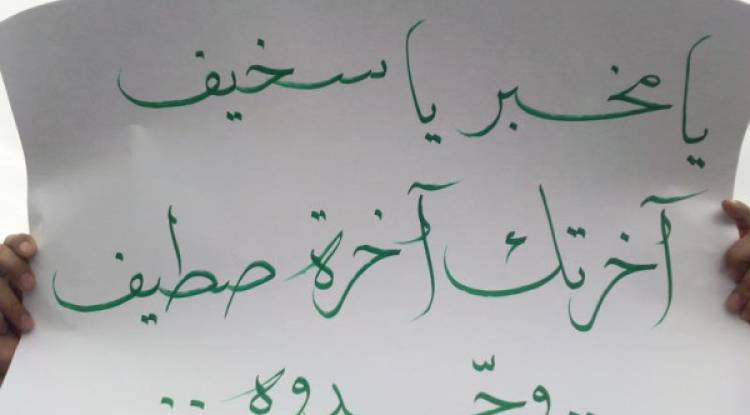 يا مخبر يا سخيف
آخرتك آخرة صطيف
.. وحّدوه ..